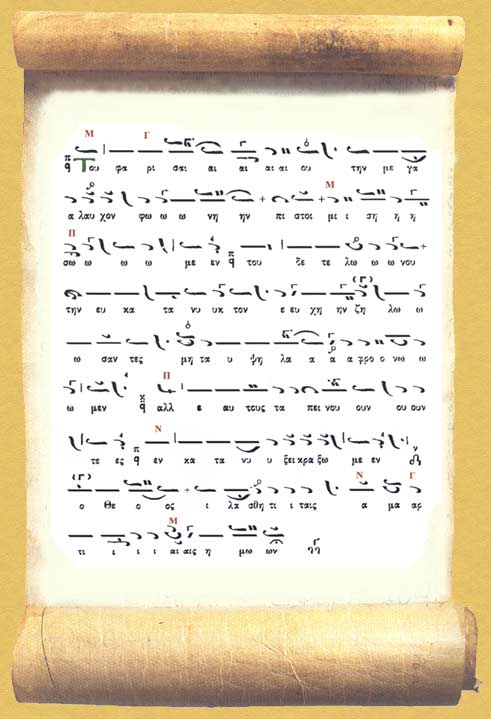 Μ Γ
Του φα ρι σαι αι αι αι αι ου την με γα
Μ
α λαυ χον φω ω ω νη ην πι στοι μι ι ση η η
Π
σω ω ω ω με εν του δε τε λω ω ω νου
(Γ)
την ευ κα τα νυ υκ τον ε ευ χη ην ζη λω ω
ω σαν τες μη τα υ ψη λα α α α φρο ο νω ω
Π
ω μεν αλλ ε αυ τους τα πει νου ουν ου ουν
Ν
τε ες εν κα τα νυ υ ξει κρα ξω με εν
(Γ) Ν Γ
ο Θε ο ος ι λα σθη τι ι ταις α μα αρ
Μ
τι ι ι ι αι αις η μω ων